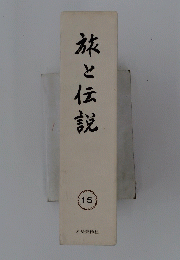 旅と伝説
15